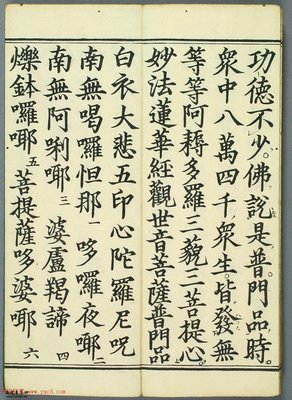 功德不少。佛說是普門品時。
衆中八萬四千。衆生。皆發無
等等阿耨多羅三藐三菩提心。
妙法蓮華經觀世音菩薩普門品
白衣大悲五印心陀羅尼呪
南無喝囉怛那 一 哆囉夜耶 二
南無阿唎耶 三 婆盧羯諦 四
爍鉢囉耶 五 菩提薩哆婆耶 六
www.yac8.com